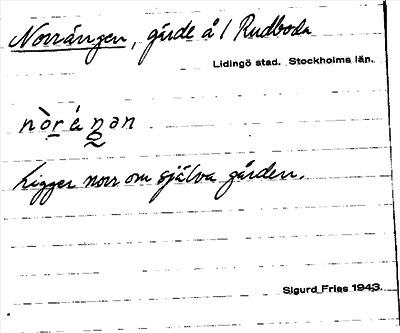 Norrängen, gärde å 1 Rudboda
Lidingö stad. Stockholms län.
Ligger norr om själva gården.
Sigurd Fries 1943.